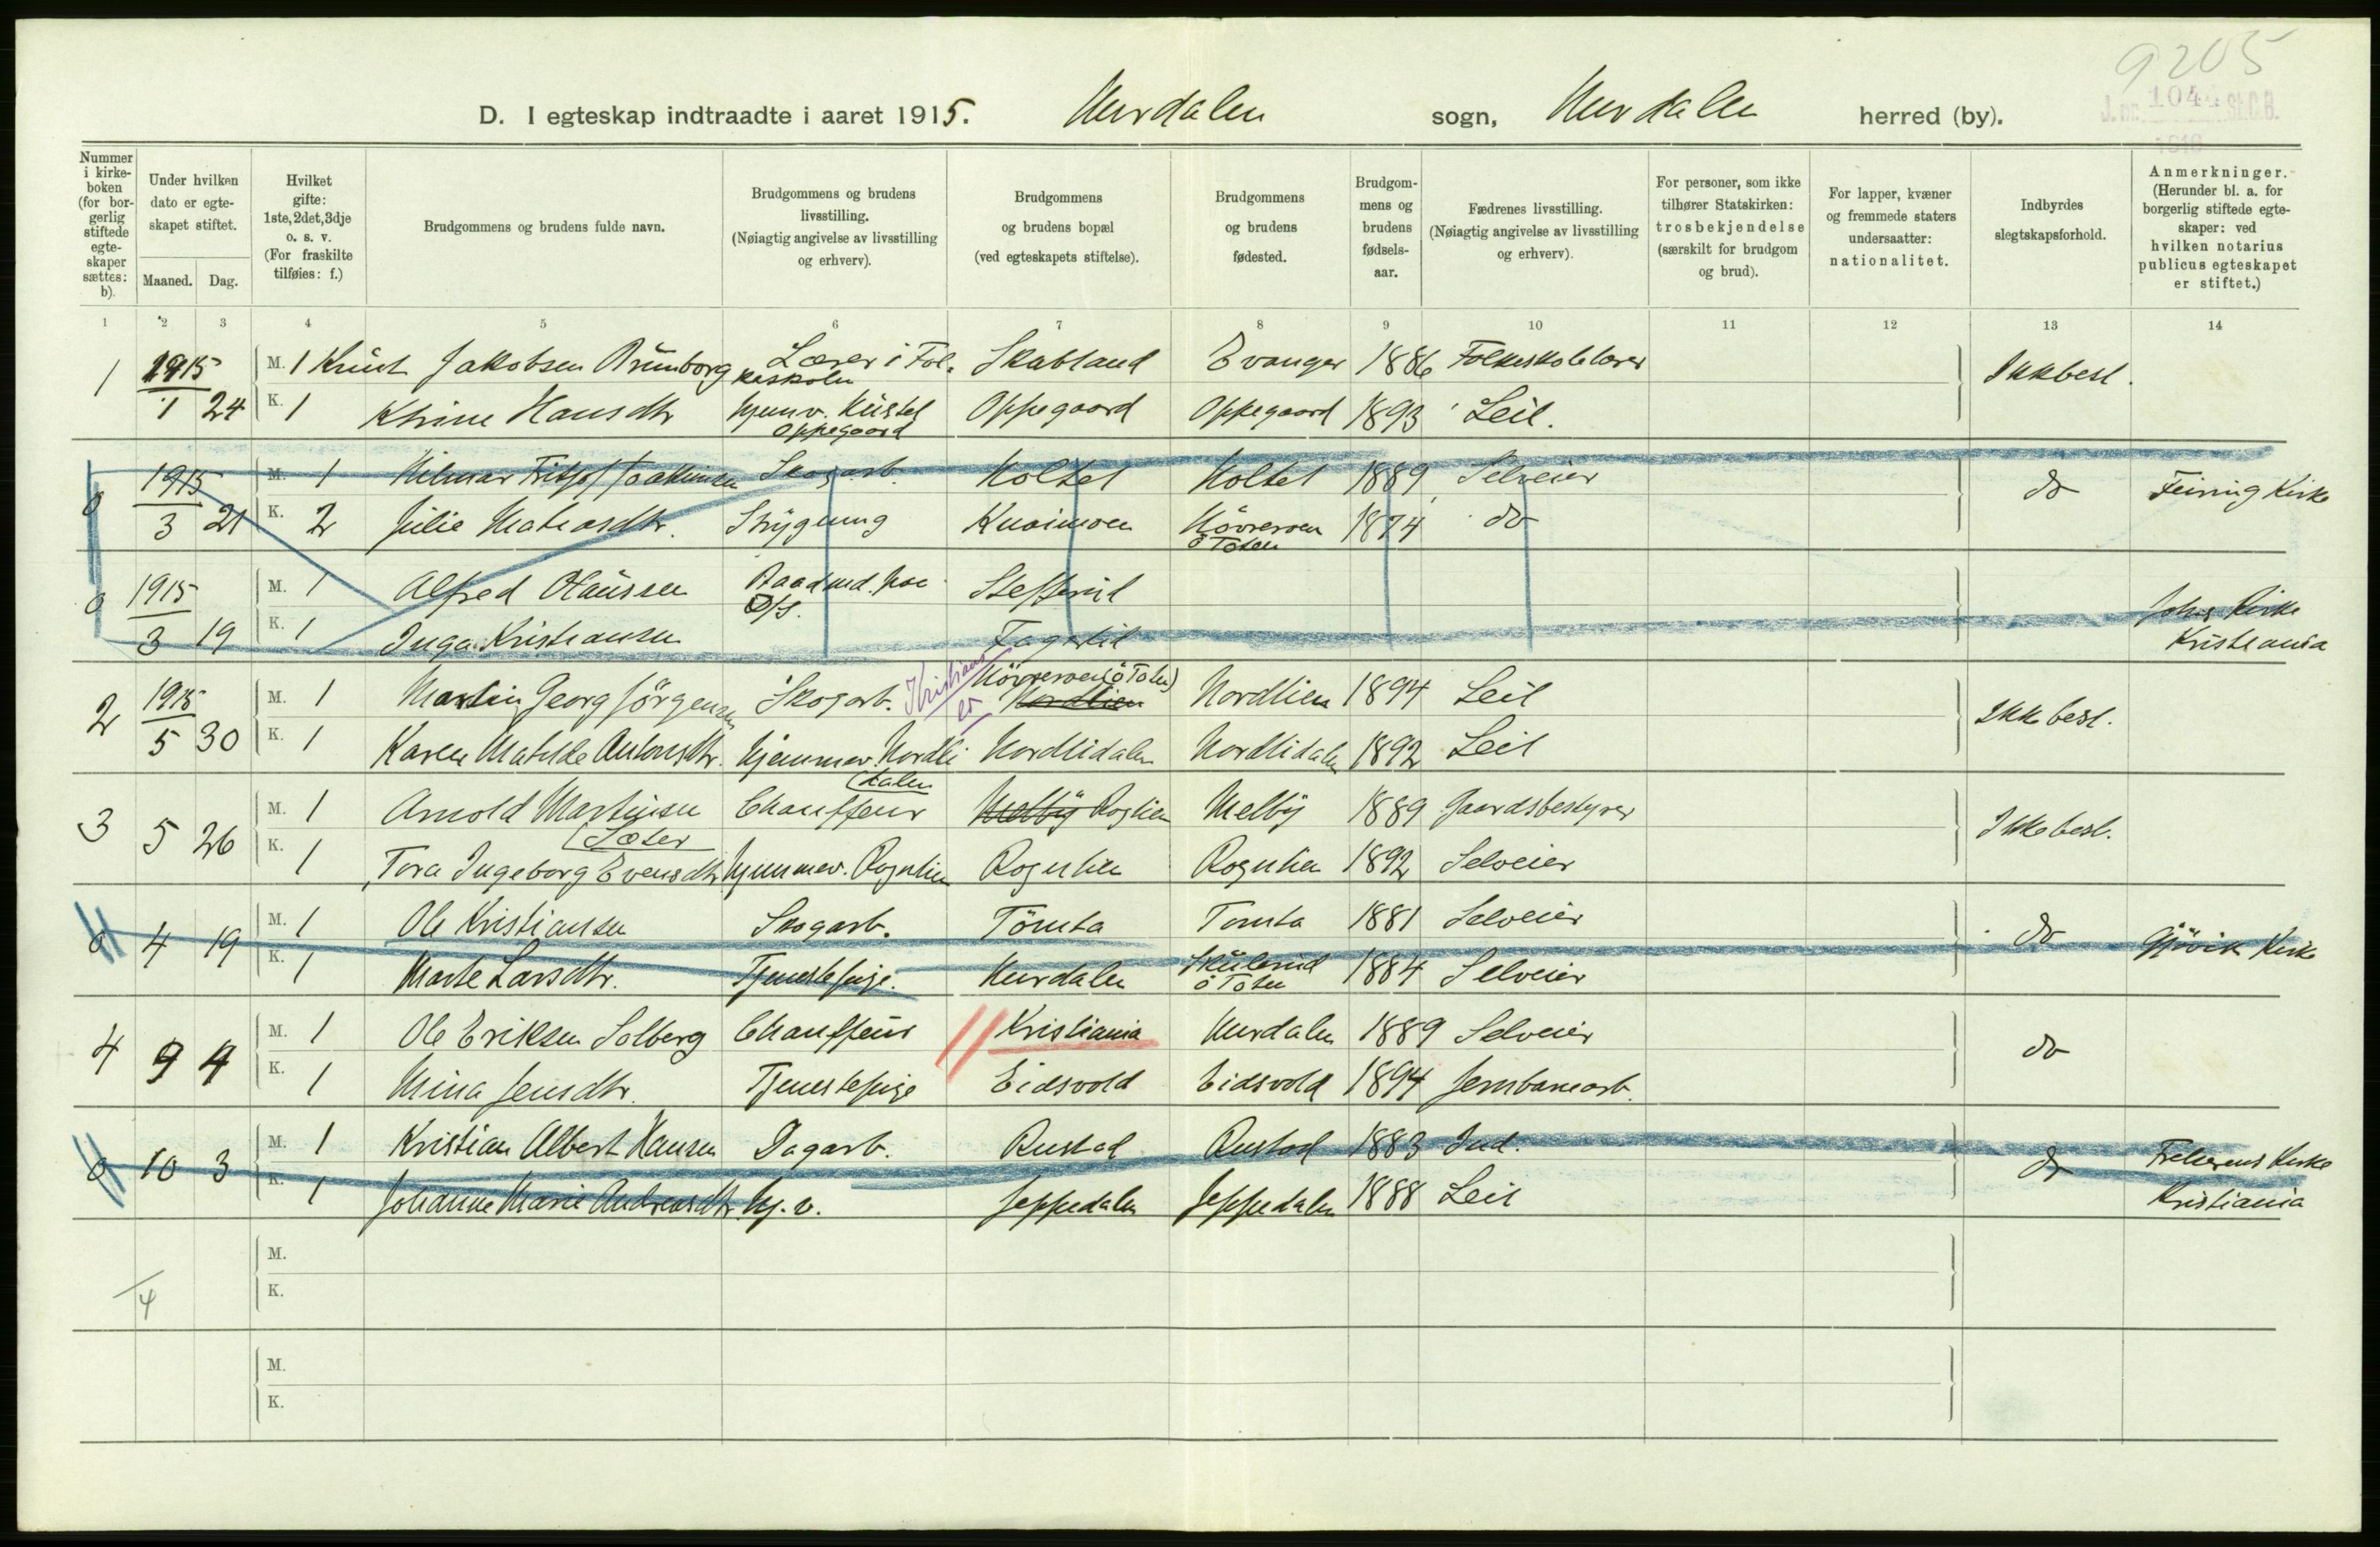 9205
J. nr. 1044 St.C.B.
D. I egteskap indtraadte i aaret 1915. Hurdalen sogn, Hurdalen herred (by).
Nummer i kirkeboken (for borgerlig stiftede egteskaper sættes: b).
Under hvilken dato er egteskapet stiftet.
Maaned. Dag.
Hvilket gifte: 1ste, 2det, 3dje o. s. v. (For fraskilte tilføies: f.)
Brudgommens og brudens fulde navn.
Brudgommens og brudens livsstilling. (Nøiagtig angivelse av livsstilling og erhverv).
Brudgommens og brudens bopæl (ved egteskapets stiftelse).
Brudgommens og brudens fødested.
Brudgommens og brudens fødselsaar.
Fædrenes livsstilling. (Nøiagtig angivelse av livsstilling og erhverv).
For personer, som ikke tilhører Statskirken: trosbekjendelse (særskilt for brudgom og brud).
For lapper, kvæner og fremmede staters undersaatter: nationalitet.
Indbyrdes slegtskapsforhold.
Anmerkninger. (Herunder bl. a. for borgerlig stiftede egteskaper: ved hvilken notarius publicus egteskapet er stiftet.)
1 2 3 4 5 6 7 8 9 10 11 12 13 14
1 1915 M. 1 Knut Jakobsen Brünborg Lærer i Folkeskolen Skabland Evanger 1886 Folkeskolelærer Ikkbesl.
1 24 K. 1 Khrine Hansdtr Hjemv. Küstel Oppegaard Oppegaard Oppegaard 1893 Leil.
0 1915 M. 1 Hilmar Fritjof Joakimsen Skogarb. Holtet Holtet 1889 Selveier do Feiring Kirke
3 21 K. 2 Julie Mathiasdtr. Sygning Knaimoen Hövreroen ö Toten 1874 do
0 1915 M. 1 Alfred Olaüssen Steffenrud Johs Kirke
3 19 K. 1 Inga Kristiansen Fagerlid Kristiania
2 1915 M. 1 Martin Georg Jörgensen Skogarb. Kristians er Hövreroen (ö Toten) Nordlien Nordlien 1894 Leil Ikke besl.
5 30 K. 1 Karen Matilde Antonsdtr. Hjemmev. Nordlidalen Nordlidalen Nordlidalen 1892 Leil
3 5 26 M. 1 Arnold Martinsen (Sæter Chauffeur Melby Roglien Melby 1889 Gaardsbestyrer Ikke besl.
K. 1 Tora Ingeborg Evensdtr Hjemmev. Rognlien Rognlien Rognlien 1892 Selveier
0 4 19 M. 1 Ole Kristiansen Skogarb. Tömta Tomta 1881 Selveier do Gjövik Kirke
K. 1 Marte Larsdtr. Tjenestepige. Hurdalen Skülerud ö Toten 1884 Selveier
4 9 4 M. 1 Ole Eriksen Solberg Chauffeur Kristiania Hurdalen 1889 Selveier do
K. 1 Mina Jensdtr. Tjenestepige Eidsvold Eidsvold 1894 Jernbanearb.
0 10 3 M. 1 Kristian Albert Hansen Dagarb. Rustad Rustad 1883 Ind. do Frelserens Kirke
K. 1 Johanne Marie Andreasdtr. Hj. v. Jeppedalen Jeppedalen 1888 Leil Kristiania
4 M.
K.
M.
K.